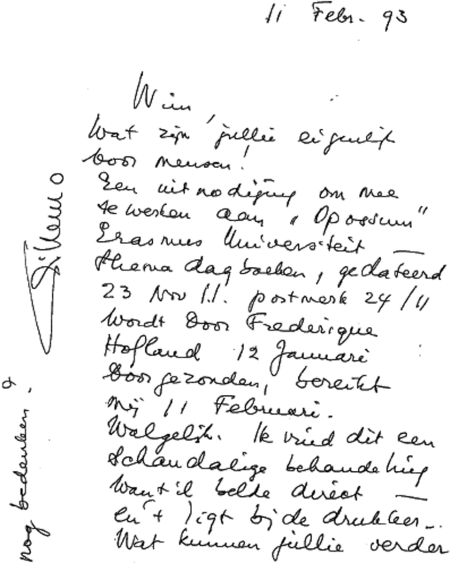 11 Febr. 93
Wim,
Wat zijn jullie eigenlijk
voor mensen!
Een uitnodiging om mee
te werken aan "Opossum"
Erasmus Universiteit —
thema dagboeken, gedateerd
23 Nov j.l. postmerk 24/11
wordt door Frederique
Hofland 12 Januari
doorgezonden, bereikt
mij 11 Februari.
Walgelijk. Ik vind dit een
schandalige behandeling
want ik belde direct —
en 't ligt bij de drukker...
Wat kunnen jullie verder
nog bedenken?